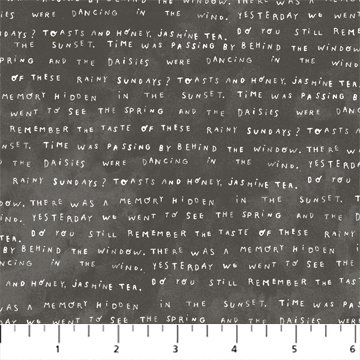 WERE DANCING IN THE WIND. YESTERDAY WE WENT
DAYS? TOASTS AND HONEY, JASMINE TEA. DO YOU STILL REMEM
THE SUNSET. TIME WAS PASSING BY BEHIND THE WINDOW.
PRING AND THE DAISIES WERE DANCING IN THE WIND.
OF THESE RAINY SUNDAYS? TOASTS AND HONEY, JASMINE TEA.
MEMORY HIDDEN IN THE SUNSET. TIME WAS PASSING
WENT TO SEE THE SPRING AND THE DAISIES WERE D
REMEMBER THE TASTE OF THESE RAINY SUNDAYS? TOASTS
NSET. TIME WAS PASSING BY BEHIND THE WINDOW. THERE WAS
THE DAISIES WERE DANCING IN THE WIND. YEST
RAINY SUNDAYS? TOASTS AND HONEY, JASMINE TEA. DO YOU
DOW. THERE WAS A MEMORY HIDDEN IN THE SUNSET. T
WIND. YESTERDAY WE WENT TO SEE THE SPRING AND THE D
TEA. DO YOU STILL REMEMBER THE TASTE OF THESE RAINY
BY BEHIND THE WINDOW. THERE WAS A MEMORY HIDDEN
NCING IN THE WIND. YESTERDAY WE WENT TO SEE THE
AND HONEY, JASMINE TEA. DO YOU STILL REMEMBER THE TAST
WAS A MEMORY HIDDEN IN THE SUNSET. TIME WAS PA
DAY WE WENT TO SEE THE SPRING AND THE DAISIES
1 2 3 4 5 6